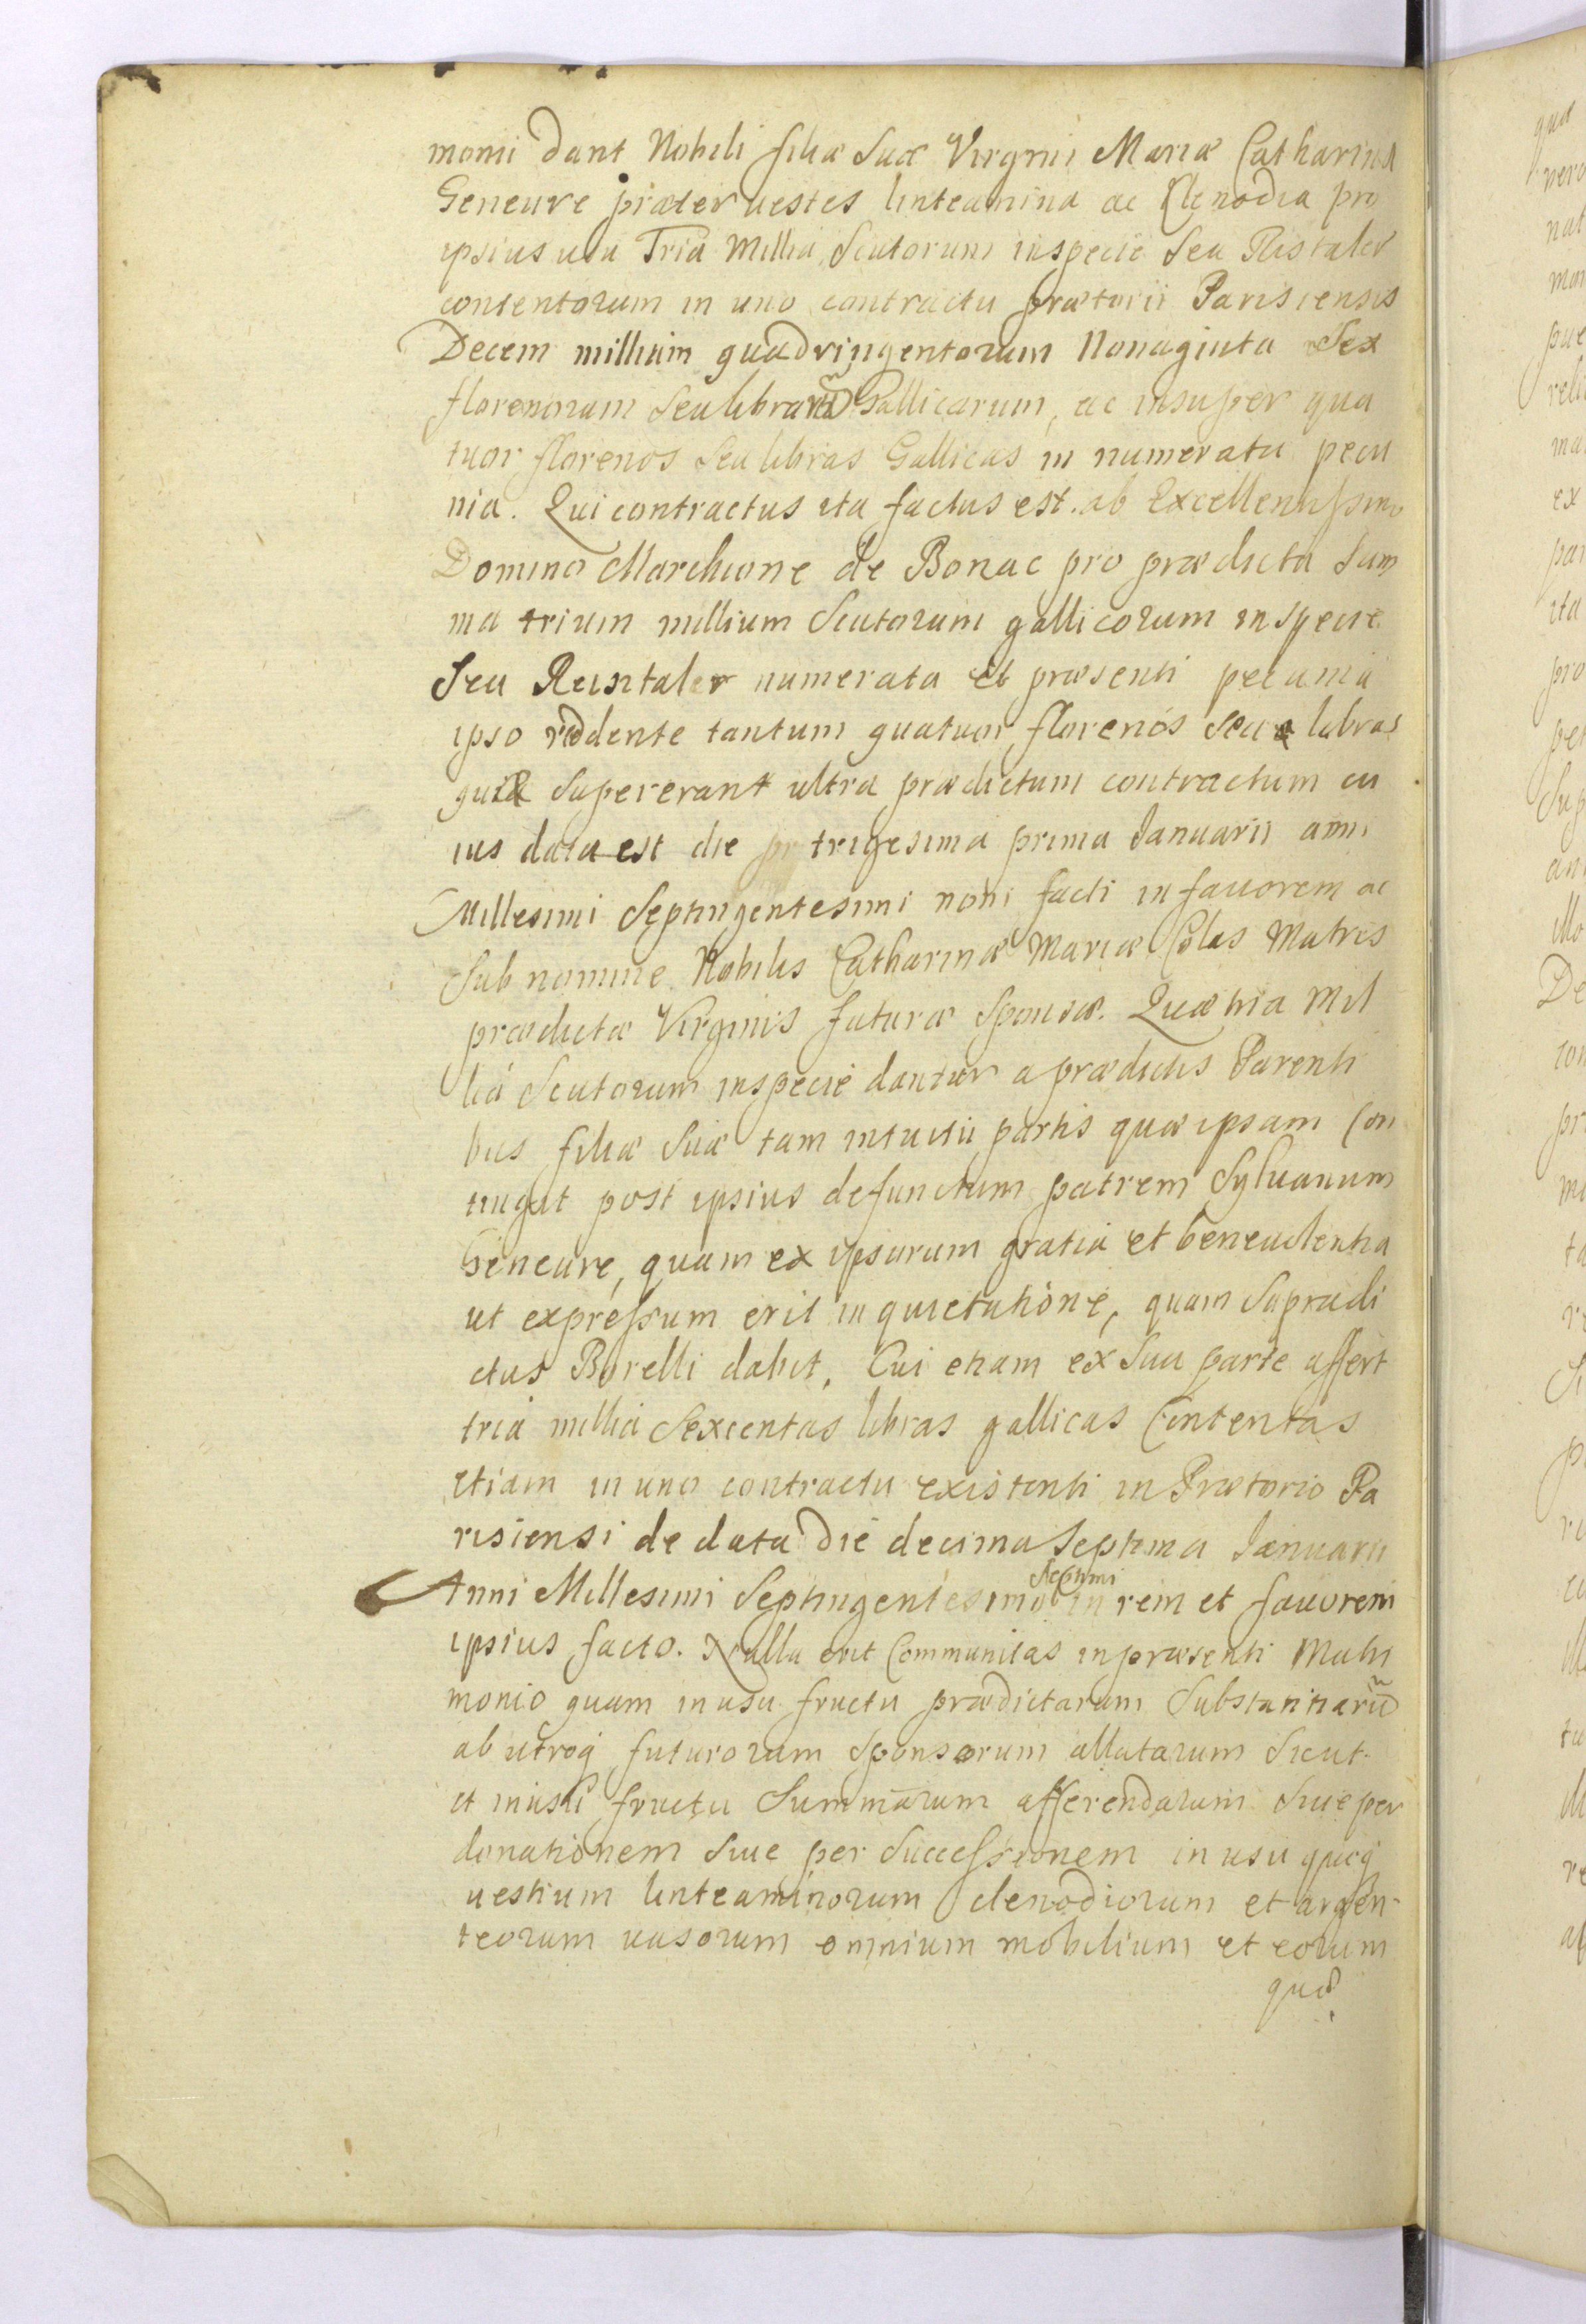 monii dant Nobili filiæ Suæ Virgini Mariæ Catharinæ
Geneure præter uestes linteamina ac Clenodia pro
ipsius usu Tria Millia Scutorum inspecie Seu Ristaler
contentorum in uno contractu prætorii Parisiensis
Decem millium quadringentorum Nonaginta Sex
florenorum Seu librarũ Gallicarum, ac insuper qua
tuor florenos Seu libras Gallicas in numerata pecu
nia. Qui contractus ita factus est. ab Excellentissimo
Domino Marchione de Bonac pro prædicta Sum
ma trium millium Scutorum gallicorum in specie
Seu Reistaler numerata et præsenti pecunia
ipso reddente tantum quatuor florenos Seu libras
quæ Supererant ultra prædictum contractum cu
ius data est die trigesima prima Ianuarii anni
Millesimi Septingentesimi noni facti in fauorem ac
Sub nomine Nobilis Catharinæ Mariæ Colas Matris
prædictæ Virginis futuræ Sponsæ. Quæ tria Mil
lia Scutorum inspecie dantur a prædictis Parenti
bus filiæ Suæ tam intuitu partis quæ ipsam Con
tingit post ipsius defunctum patrem Syluanum
Geneure, quam ex ipsorum gratia et beneuolentia
ut expressum erit in quietatione, quam Supradi
ctus Borelli dabit, Cui etiam ex Sua parte affert
tria millia Sexcentas libras gallicas Contentas
etiam in uno contractu existenti in Prætorio Pa
risiensi de data die decima Septima Ianuarii
Anni Millesimi Septingentesimo decimi in rem et fauorem
ipsius facto. Nulla erit Communitas in præsenti Matri
monio quam in usu fructu prædictarum Substantiarũ
ab utroq futurorum Sponsorum allatarum Sicut
et in usu fructu Summarum afferendarum Siue per
donationem Siue per Successionem in usu quoq
uestium linteaminorum clenodiorum et argen-
teorum uasorum omnium mobilium et eorum
quæ